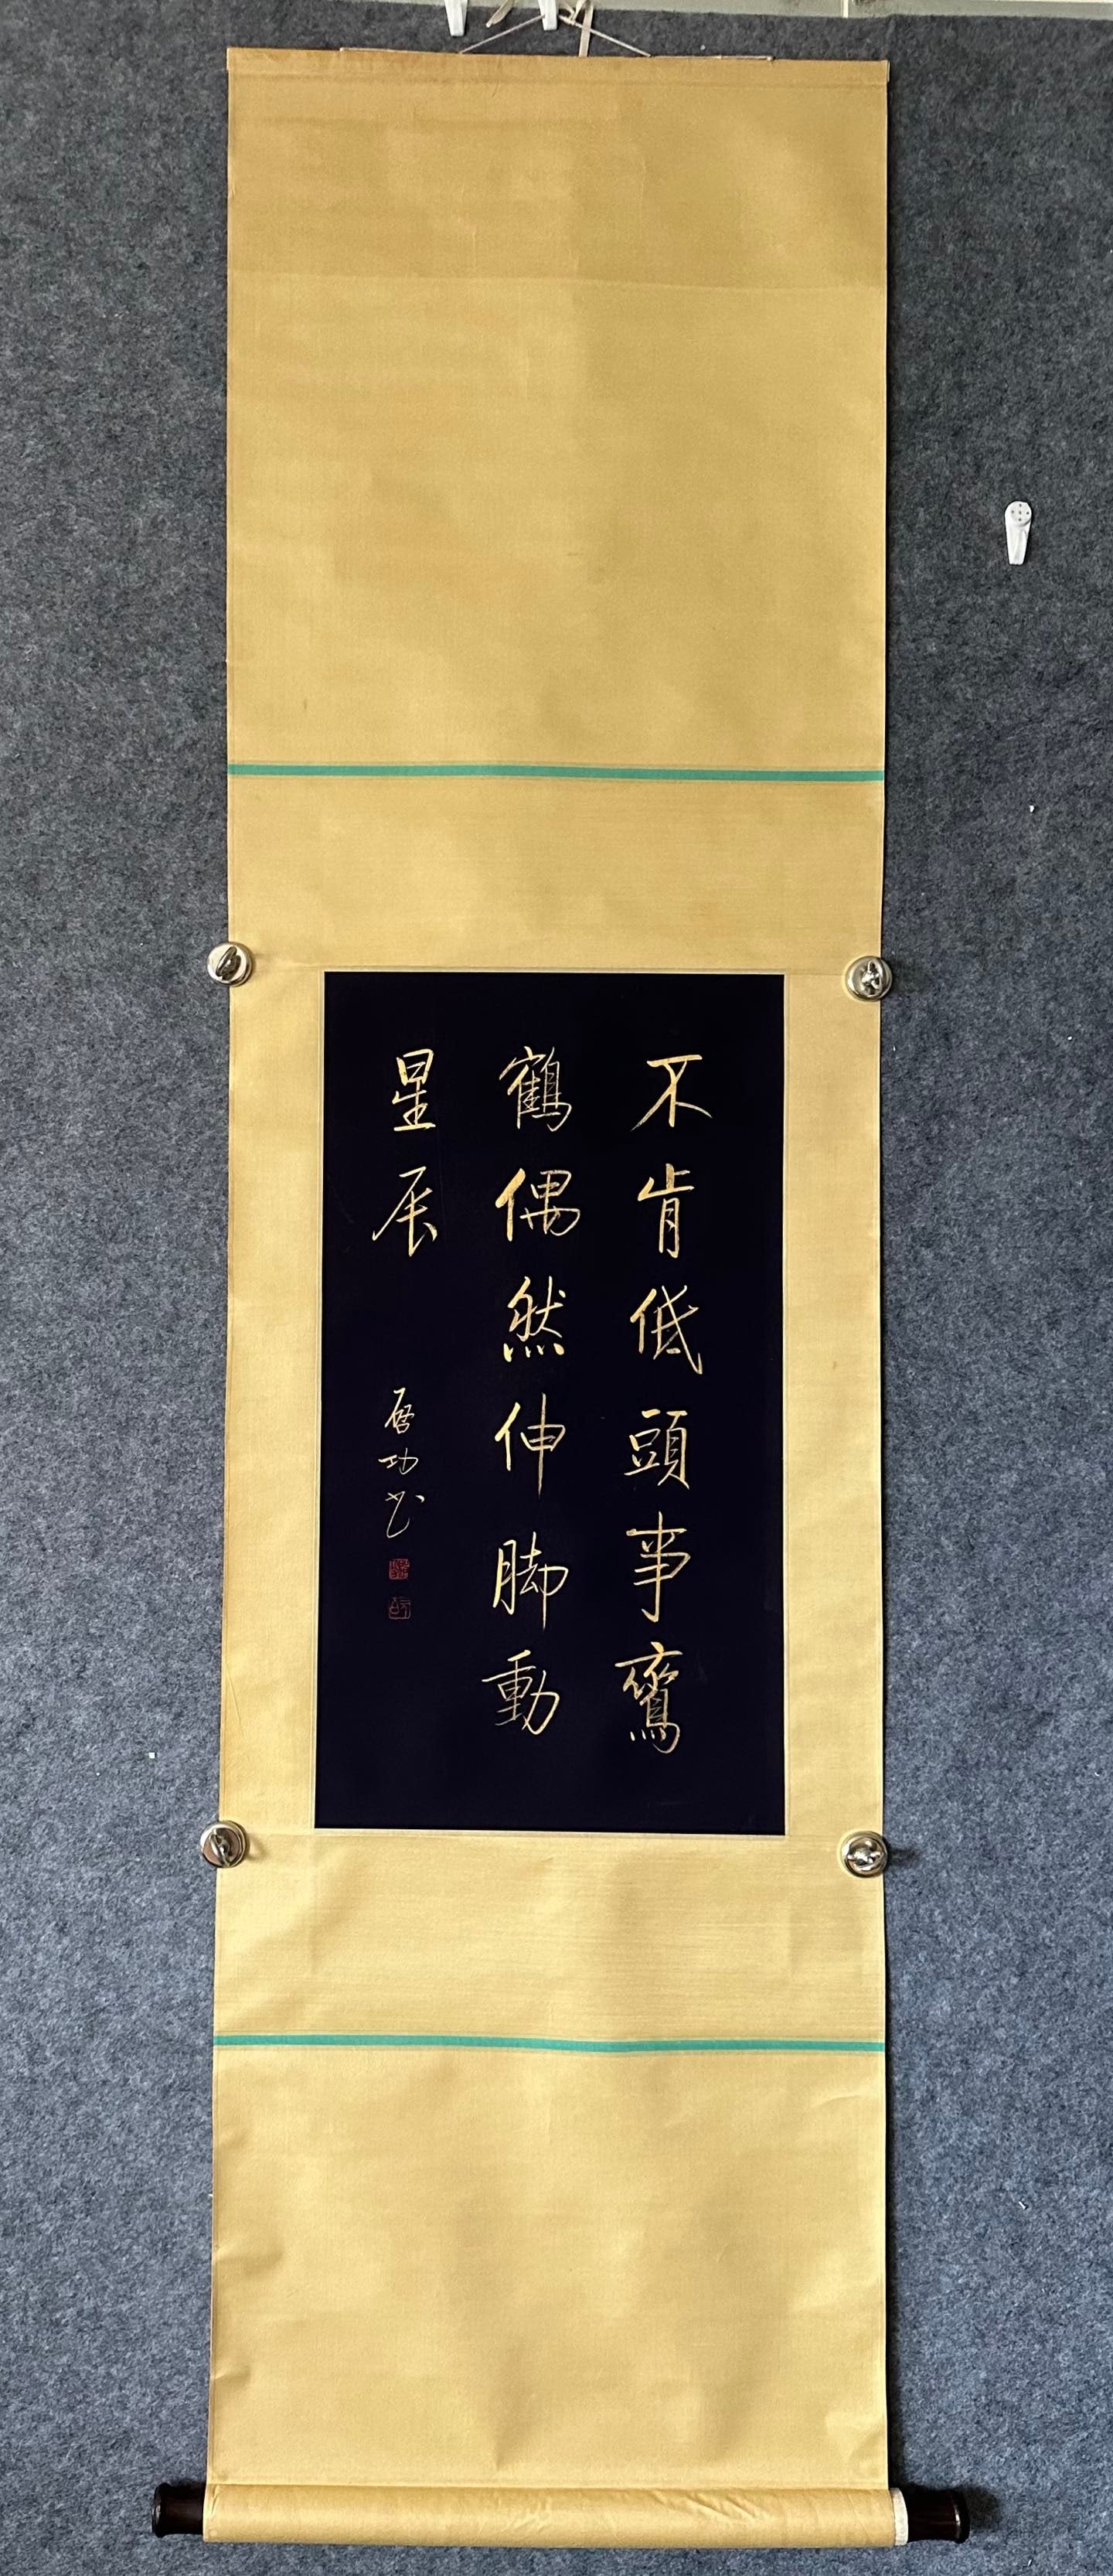 不肯低頭事鸞
鶴偶然伸脚動
星辰
啓功书